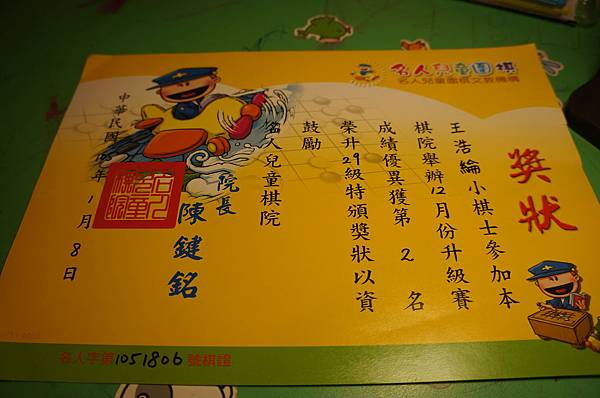 名人兒童圍棋
名人兒童圍棋文教機構
獎狀
王浩綸小棋士參加本
棋院舉辦12月份升級賽
成績優異獲第 2 名
榮升29級特頒獎狀以資
鼓勵
名人兒童棋院
院長
陳鍵銘
中華民國105年1月8日
名人字第1051806號棋證